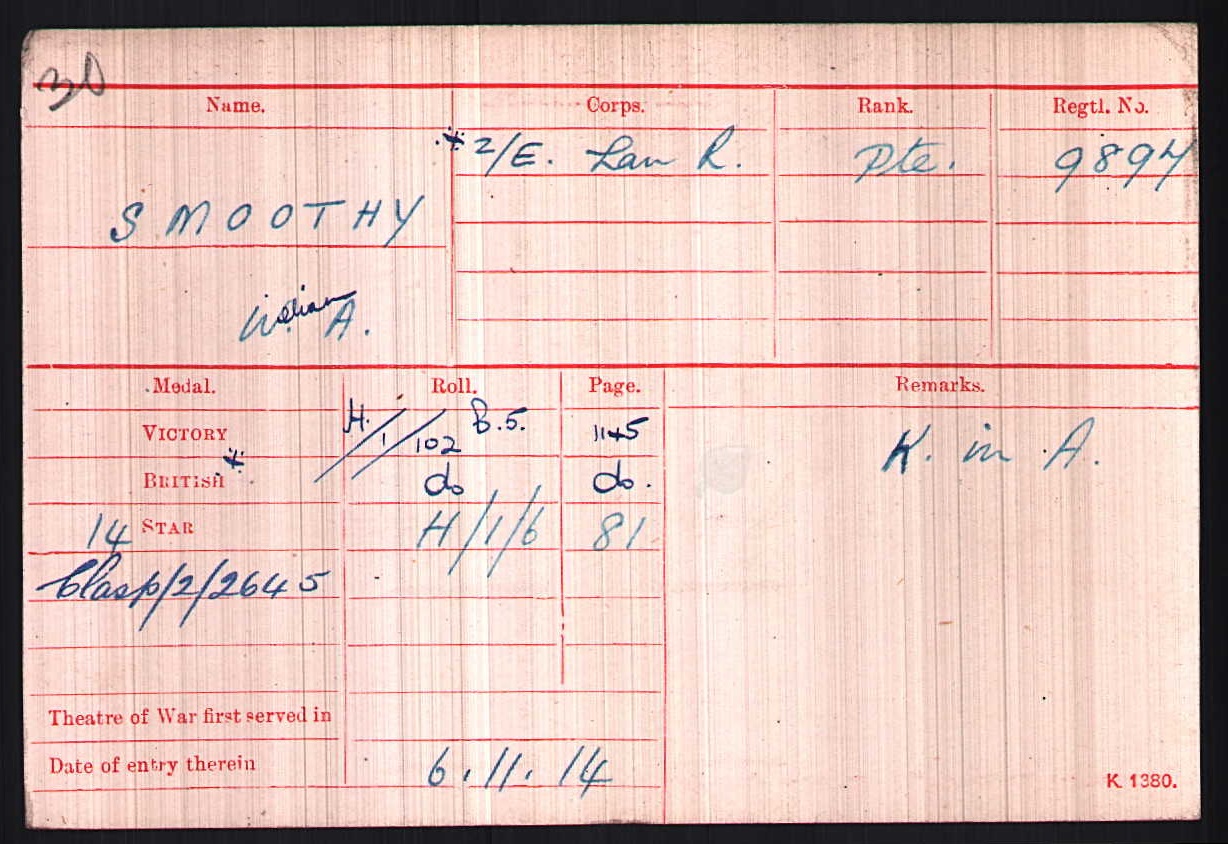 30
Name. Corps. Rank. Regtl. No.
* 2/E. Lan R. Pte. 9897
SMOOTHY
William A.
Medal. Roll. Page. Remarks.
VICTORY H/1/102 B.5. 1145 K. in A.
BRITISH * do do.
14 STAR H/1/6 81
Clasp/2/2645
Theatre of War first served in
Date of entry therein 6.11.14
K 1380.